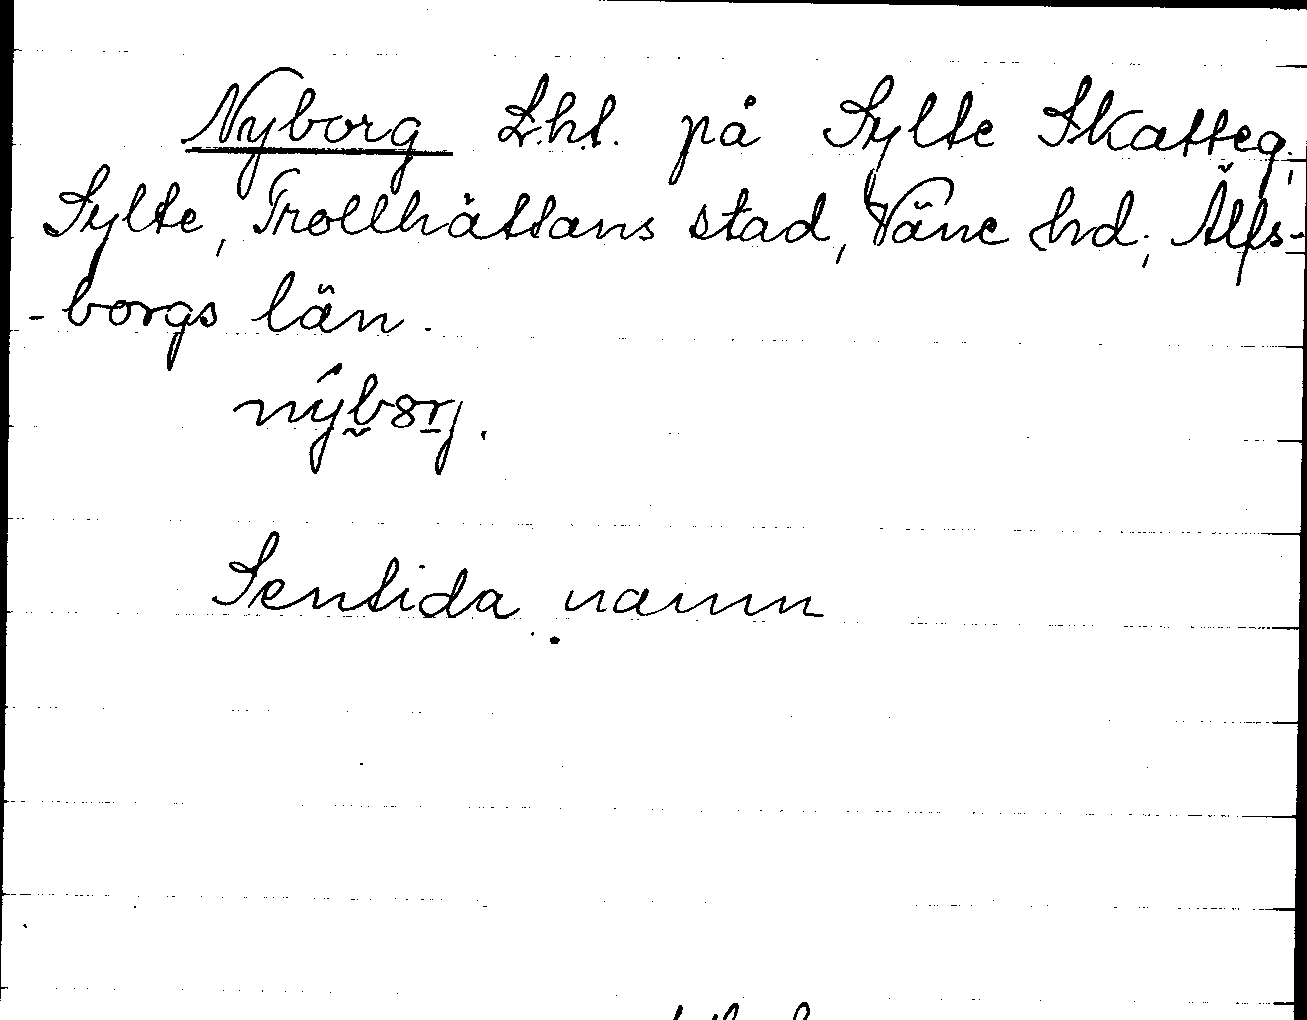 Nyborg Lht. på Sylte Skatteg.,
Sylte, Trollhättans stad, Väne hd., Älfs-
-borgs län.
Sentida namn